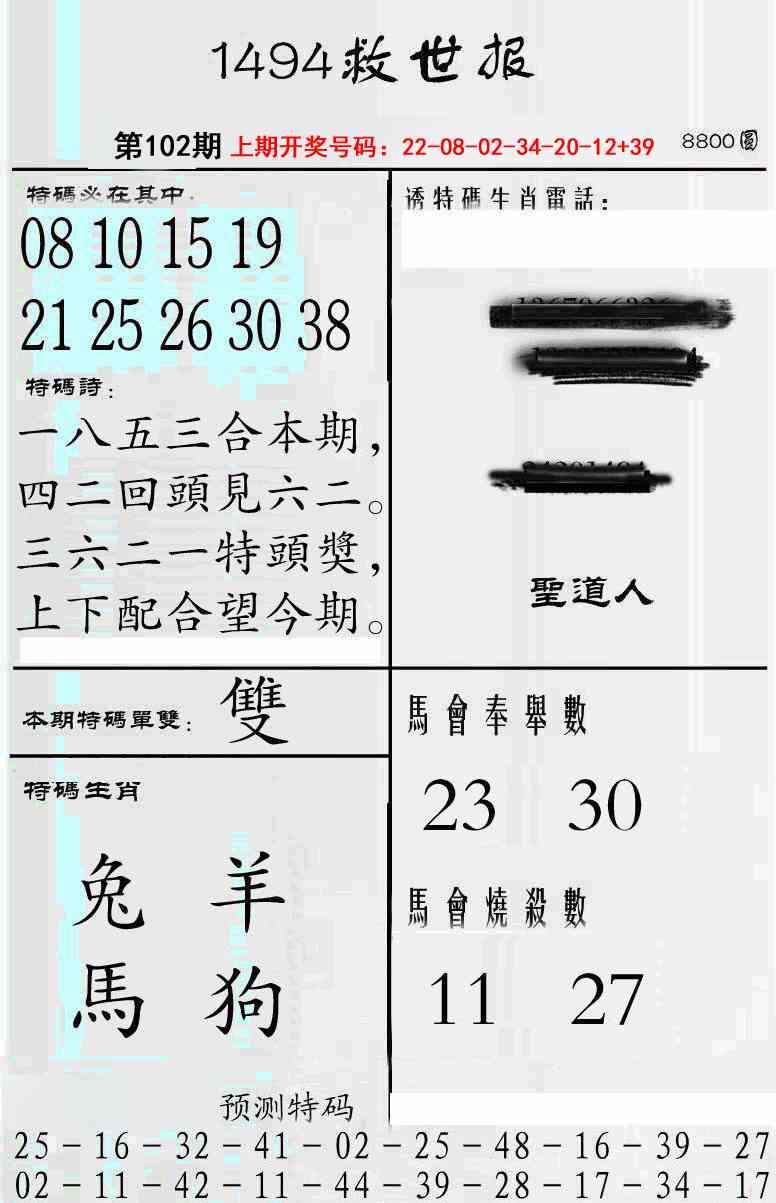 1494救世报
第102期 上期开奖号码：22-08-02-34-20-12+39 8800圓
特碼必在其中：
08 10 15 19
21 25 26 30 38
特碼詩：
一八五三合本期，
四二回頭見六二。
三六二一特頭獎，
上下配合望今期。
透特碼生肖電話：
聖道人
本期特碼單雙：雙
特碼生肖
兔 羊
馬 狗
馬會奉舉數
23 30
馬會燒殺數
11 27
预测特码
25－16－32－41－02－25－48－16－39－27
02－11－42－11－44－39－28－17－34－17